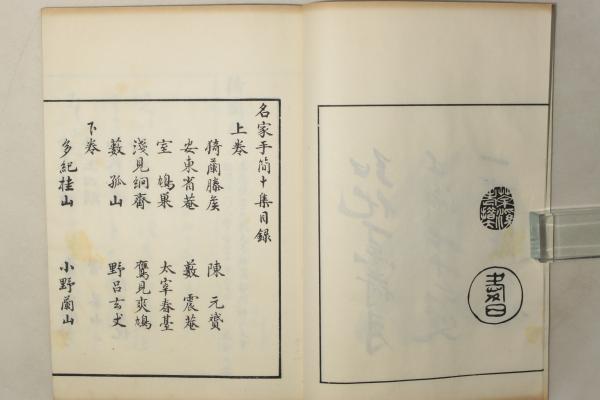 名家手簡十集目録
上巻
猗蘭滕矦　陳元贇
安東省菴　藪震菴
室鳩巣　太宰春臺
淺見絅齋　鷹見爽鳩
藪孤山　野呂玄丈
下巻
多紀桂山　小野蘭山